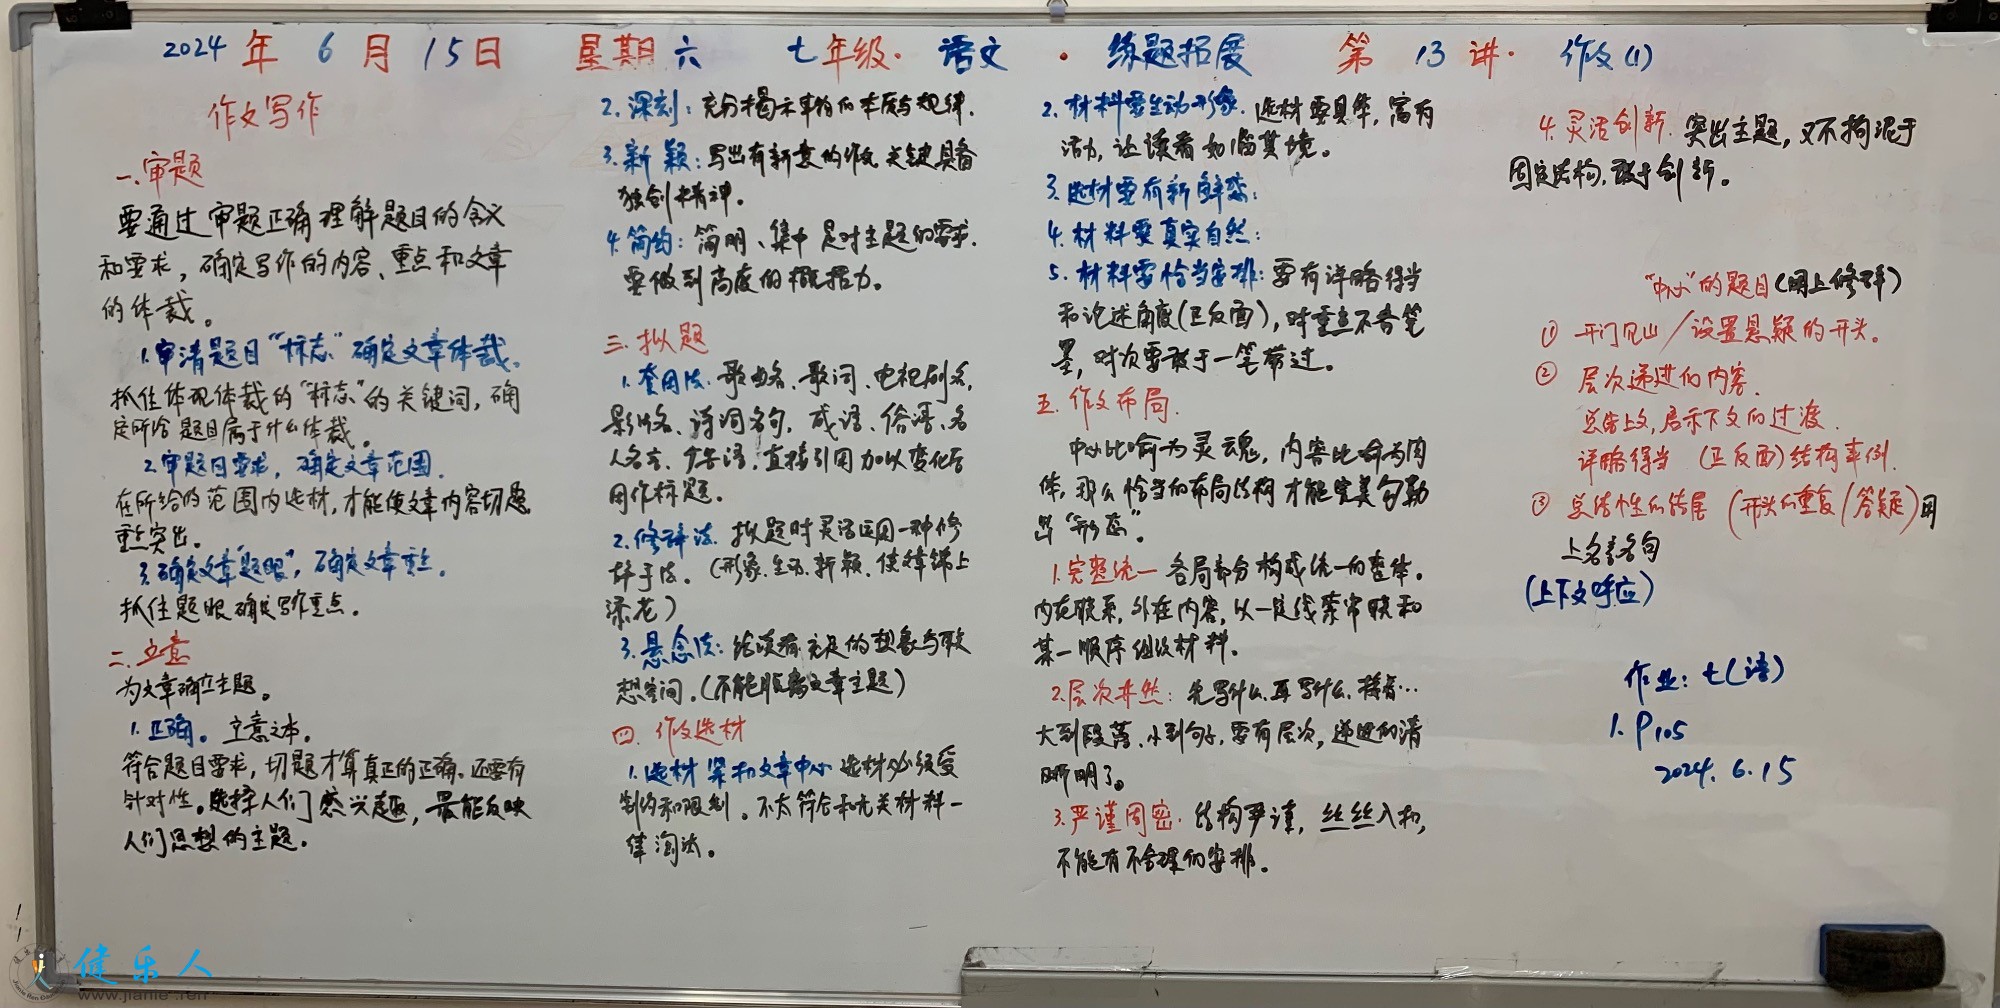 2024年6月15日 星期六 七年级·语文·练题拓展 第13讲·作文(1)
作文写作
一.审题
要通过审题正确理解题目的含义
和要求，确定写作的内容、重点和文章
的体裁。
1.审清题目“标志”确定文章体裁。
抓住体现体裁的“标志”的关键词，确
定所给题目属于什么体裁。
2.审题目要求，确定文章范围.
在所给的范围内选材，才能使文章内容切题
重点突出。
3.确定文章“题眼”，确定文章重点.
抓住题眼确定写作重点。
二.立意
为文章确立主题。
1.正确。立意之本。
符合题目要求，切题才算真正的正确。还要有
针对性。选择人们感兴趣，最能反映
人们思想的主题。
2.深刻：充分揭示事物的本质与规律.
3.新颖：写出有新意的作文.关键具备
独创精神。
4.简约：简明、集中是对主题的要求.
要做到高度的概括力。
三.拟题
1.套用法.歌曲名、歌词、电视剧名，
影片名、诗词名句，成语、俗语、名
人名言、广告语.直接引用加以变化后
用作标题。
2.修辞法.拟题时灵活运用一种修
辞手法。（形象.生动.新颖.使文章锦上
添花）
3.悬念法：给读者充足的想象与联
想空间.（不能脱离文章主题）
四.作文选材
1.选材紧扣文章中心 选材必须受
制约和限制。不太符合和无关材料一
律淘汰。
2.材料要生动形象.选材要具体，富有
活力，让读者如临其境。
3.选材要有新鲜感：
4.材料要真实自然：
5.材料要恰当安排：要有详略得当
和论述角度(正反面)，对重点不吝笔
墨，对次要敢于一笔带过。
五.作文布局.
中心比喻为灵魂，内容比喻为肉
体，那么恰当的布局结构才能完美勾勒
出“形态”。
1.完整统一 各局部分构成统一的整体。
内在联系，外在内容，以一定线索串联和
某一顺序组织材料。
2.层次井然：先写什么.再写什么.接着…
大到段落、小到句子，要有层次，递进的清
晰明了。
3.严谨周密.结构严谨，丝丝入扣，
不能有不合理的安排。
4.灵活创新.突出主题，又不拘泥于
固定结构，敢于创新。
“中心”的题目(用上修辞)
① 开门见山/设置悬疑的开头。
② 层次递进的内容.
总结上文，启示下文的过渡.
详略得当 (正反面)结构事例.
③ 总结性的结尾(开头的重复/答疑)用
上名言名句
(上下文呼应)
作业：七(语)
1. P105
2024.6.15
健乐人
www.jianle.ren